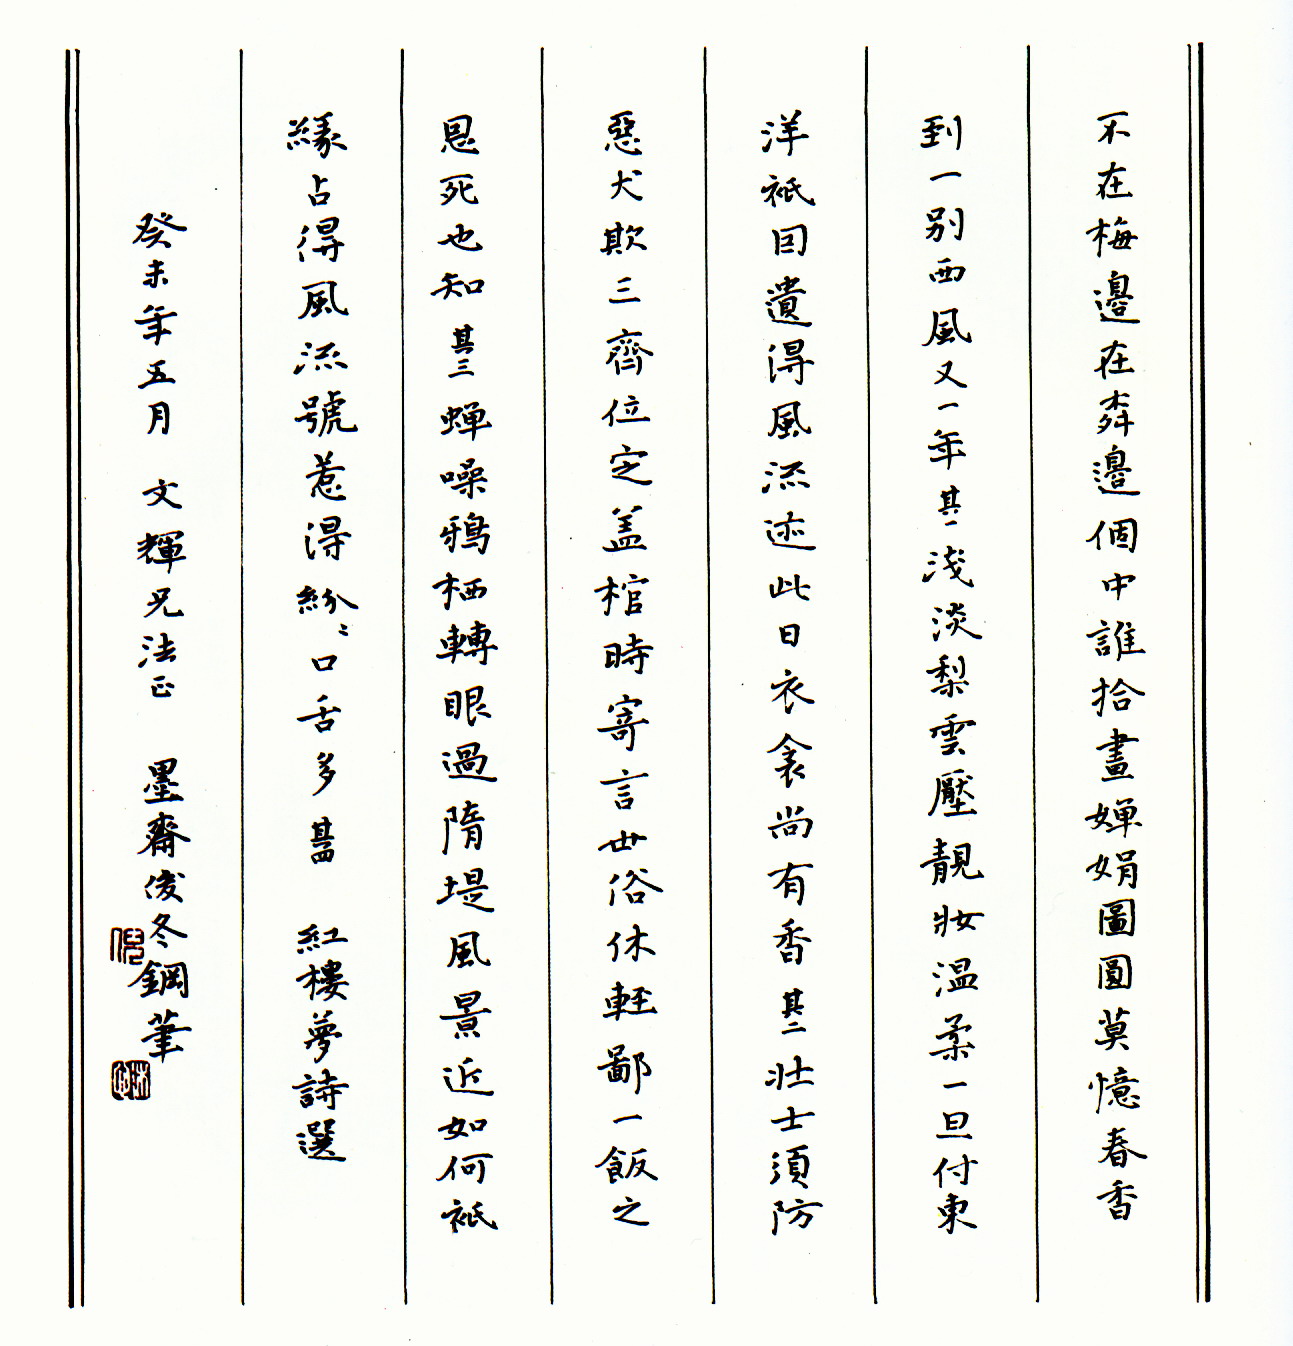 不在梅邊在粦邊個中誰拾畫嬋娟圖圓莫憶春香
到一別西風又一年其一淺淡梨雲壓靚妝温柔一旦付東
洋衹因遺得風流迹此日衣衾尚有香其二壯士須防
惡犬欺三齊位定盖棺時寄言世俗休輕鄙一飯之
恩死也知其三蟬噪鴉栖轉眼過隋堤風景近如何衹
緣占得風流號惹得紛〻口舌多其四 紅樓夢詩選
癸未年五月 文輝兄法正 墨齋俊冬鋼筆